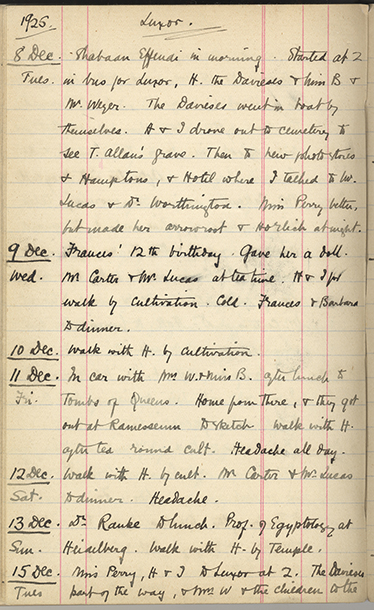 1925. Luxor.
8 Dec. Shabaan Effendi in morning. Started at 2
Tues. in bus for Luxor, H. the Davieses & Miss B &
Mr. The Davieses went in boat by
themselves. H & I drove out to cemetery to
see T. Allan's grave. Then to new photo stores
& Hamptons, & Hotel where I talked to Mr.
Lucas & Dr. Worthington. Miss Perry better,
but made her arrowroot & Horlick at night.
9 Dec. Frances' 12th birthday. Gave her a doll.
Wed. Mr Carter & Mr. Lucas at tea time. H & I for
walk by cultivation. Cold. Frances & Barbara
to dinner.
10 Dec. Walk with H. by cultivation.
11 Dec. In car with Mrs W. & Miss B. after lunch to
Fri. Tombs of Queens. Home from there, & they got
out at Ramesseum to sketch. Walk with H.
after tea round cult. Headache all day.
12 Dec. Walk with H. by cult. Mr Carter & Mr. Lucas
Sat. to dinner. Headache.
13 Dec. Dr. Ranke to lunch. Prof. of Egyptology at
Sun. Heidelberg. Walk with H. by Temple.
15 Dec. Miss Perry, H & I to Luxor at 2. The Davieses
Tues part of the way, & Mrs W & the children to the